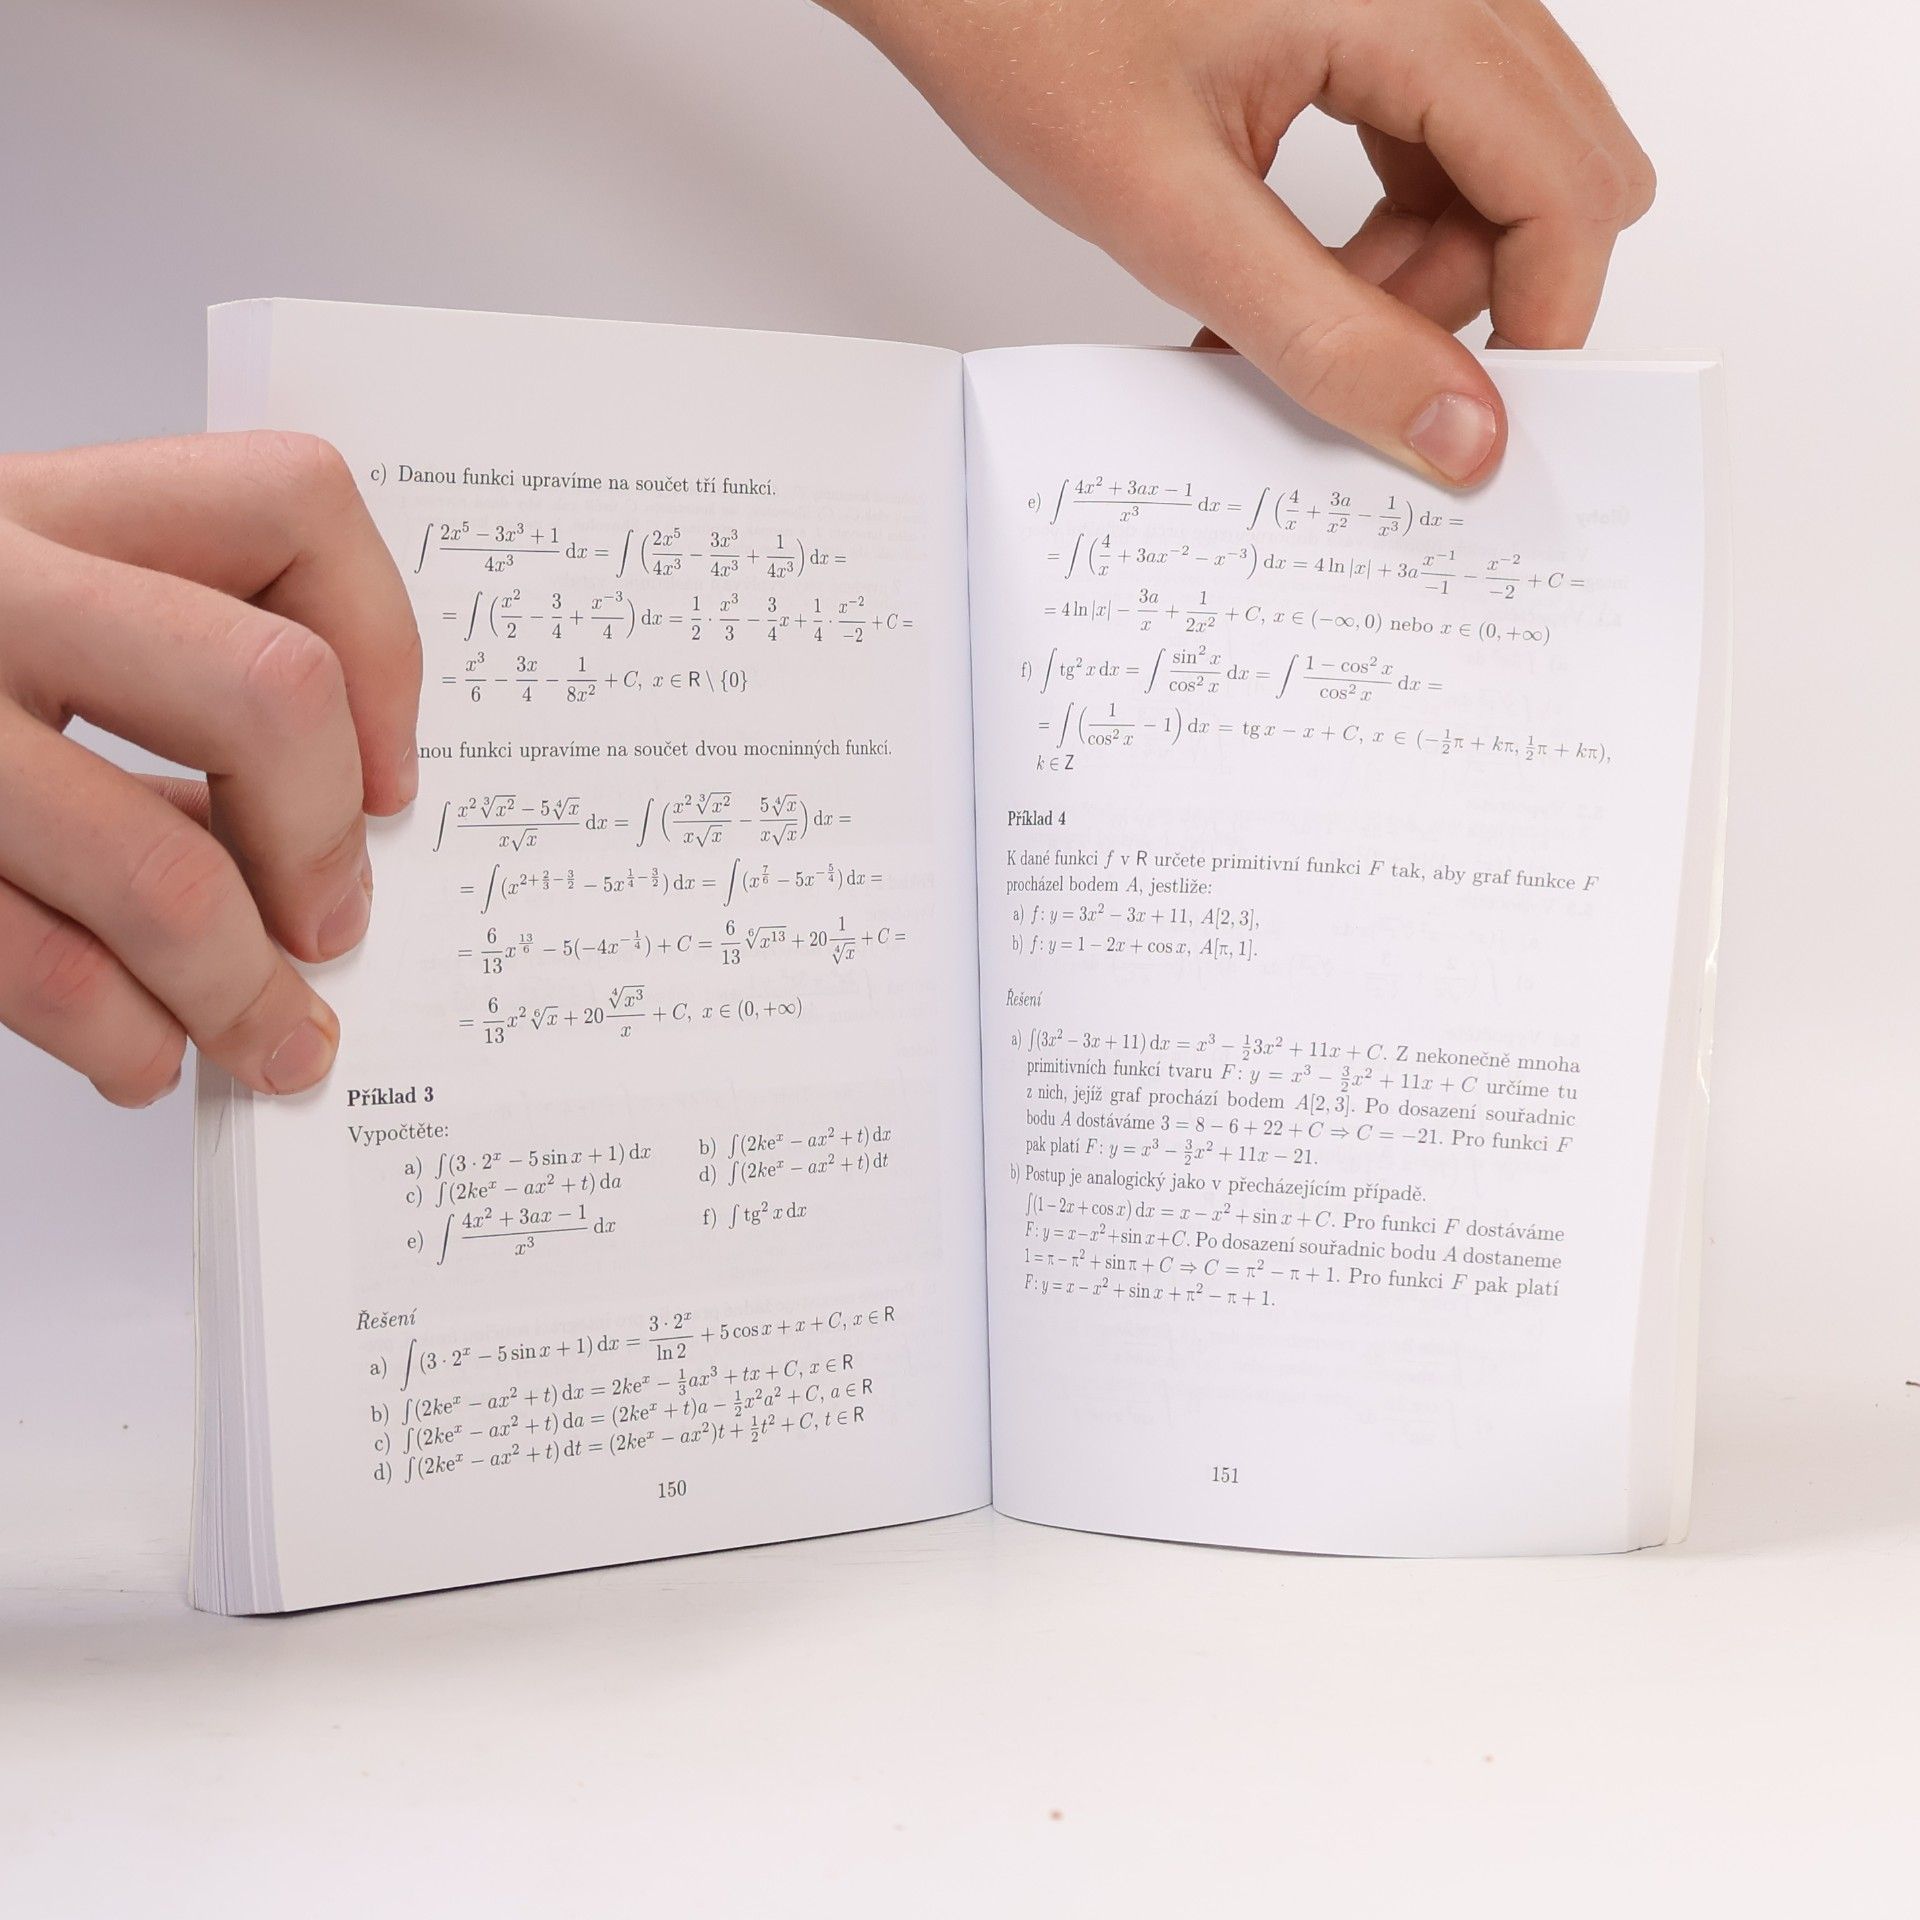 c) Danou funkci upravíme na součet tří funkcí.
∫ (2x⁵ − 3x³ + 1)/(4x³) dx = ∫ (2x⁵/4x³ − 3x³/4x³ + 1/4x³) dx =
= ∫ (x²/2 − 3/4 + x⁻³/4) dx = 1/2 · x³/3 − 3/4 x + 1/4 · x⁻²/−2 + C =
= x³/6 − 3x/4 − 1/8x² + C, x ∈ R \ {0}
nou funkci upravíme na součet dvou mocninných funkcí.
∫ (x² ∛x² − 5 ∜x)/(x√x) dx = ∫ (x² ∛x²/x√x − 5 ∜x/x√x) dx =
= ∫(x^(2+2/3−3/2) − 5x^(1/4−3/2)) dx = ∫(x^(7/6) − 5x^(−5/4)) dx =
= 6/13 x^(13/6) − 5(−4x^(−1/4)) + C = 6/13 ⁶√x¹³ + 20 1/∜x + C =
= 6/13 x² ⁶√x + 20 ∜x³/x + C, x ∈ (0, +∞)
Příklad 3
Vypočtěte:
a) ∫(3 · 2ˣ − 5 sin x + 1) dx b) ∫(2keˣ − ax² + t) dx
c) ∫(2keˣ − ax² + t) da d) ∫(2keˣ − ax² + t) dt
e) ∫ (4x² + 3ax − 1)/x³ dx f) ∫ tg² x dx
Řešení
a) ∫(3 · 2ˣ − 5 sin x + 1) dx = 3 · 2ˣ/ln 2 + 5 cos x + x + C, x ∈ R
b) ∫(2keˣ − ax² + t) dx = 2keˣ − 1/3 ax³ + tx + C, x ∈ R
c) ∫(2keˣ − ax² + t) da = (2keˣ + t)a − 1/2 x²a² + C, a ∈ R
d) ∫(2keˣ − ax² + t) dt = (2keˣ − ax²)t + 1/2 t² + C, t ∈ R
150
e) ∫ (4x² + 3ax − 1)/x³ dx = ∫ (4/x + 3a/x² − 1/x³) dx =
= ∫ (4/x + 3ax⁻² − x⁻³) dx = 4 ln |x| + 3a x⁻¹/−1 − x⁻²/−2 + C =
= 4 ln |x| − 3a/x + 1/2x² + C, x ∈ (−∞, 0) nebo x ∈ (0, +∞)
f) ∫ tg² x dx = ∫ sin² x/cos² x dx = ∫ (1 − cos² x)/cos² x dx =
= ∫ (1/cos² x − 1) dx = tg x − x + C, x ∈ (−1/2 π + kπ, 1/2 π + kπ),
k ∈ Z
Příklad 4
K dané funkci f v R určete primitivní funkci F tak, aby graf funkce F
procházel bodem A, jestliže:
a) f: y = 3x² − 3x + 11, A[2, 3],
b) f: y = 1 − 2x + cos x, A[π, 1].
Řešení
a) ∫(3x² − 3x + 11) dx = x³ − 1/2 3x² + 11x + C. Z nekonečně mnoha
primitivních funkcí tvaru F: y = x³ − 3/2 x² + 11x + C určíme tu
z nich, jejíž graf prochází bodem A[2, 3]. Po dosazení souřadnic
bodu A dostáváme 3 = 8 − 6 + 22 + C ⇒ C = −21. Pro funkci F
pak platí F: y = x³ − 3/2 x² + 11x − 21.
b) Postup je analogický jako v přecházejícím případě.
∫(1 − 2x + cos x) dx = x − x² + sin x + C. Pro funkci F dostáváme
F: y = x − x² + sin x + C. Po dosazení souřadnic bodu A dostaneme
1 = π − π² + sin π + C ⇒ C = π² − π + 1. Pro funkci F pak platí
F: y = x − x² + sin x + π² − π + 1.
151